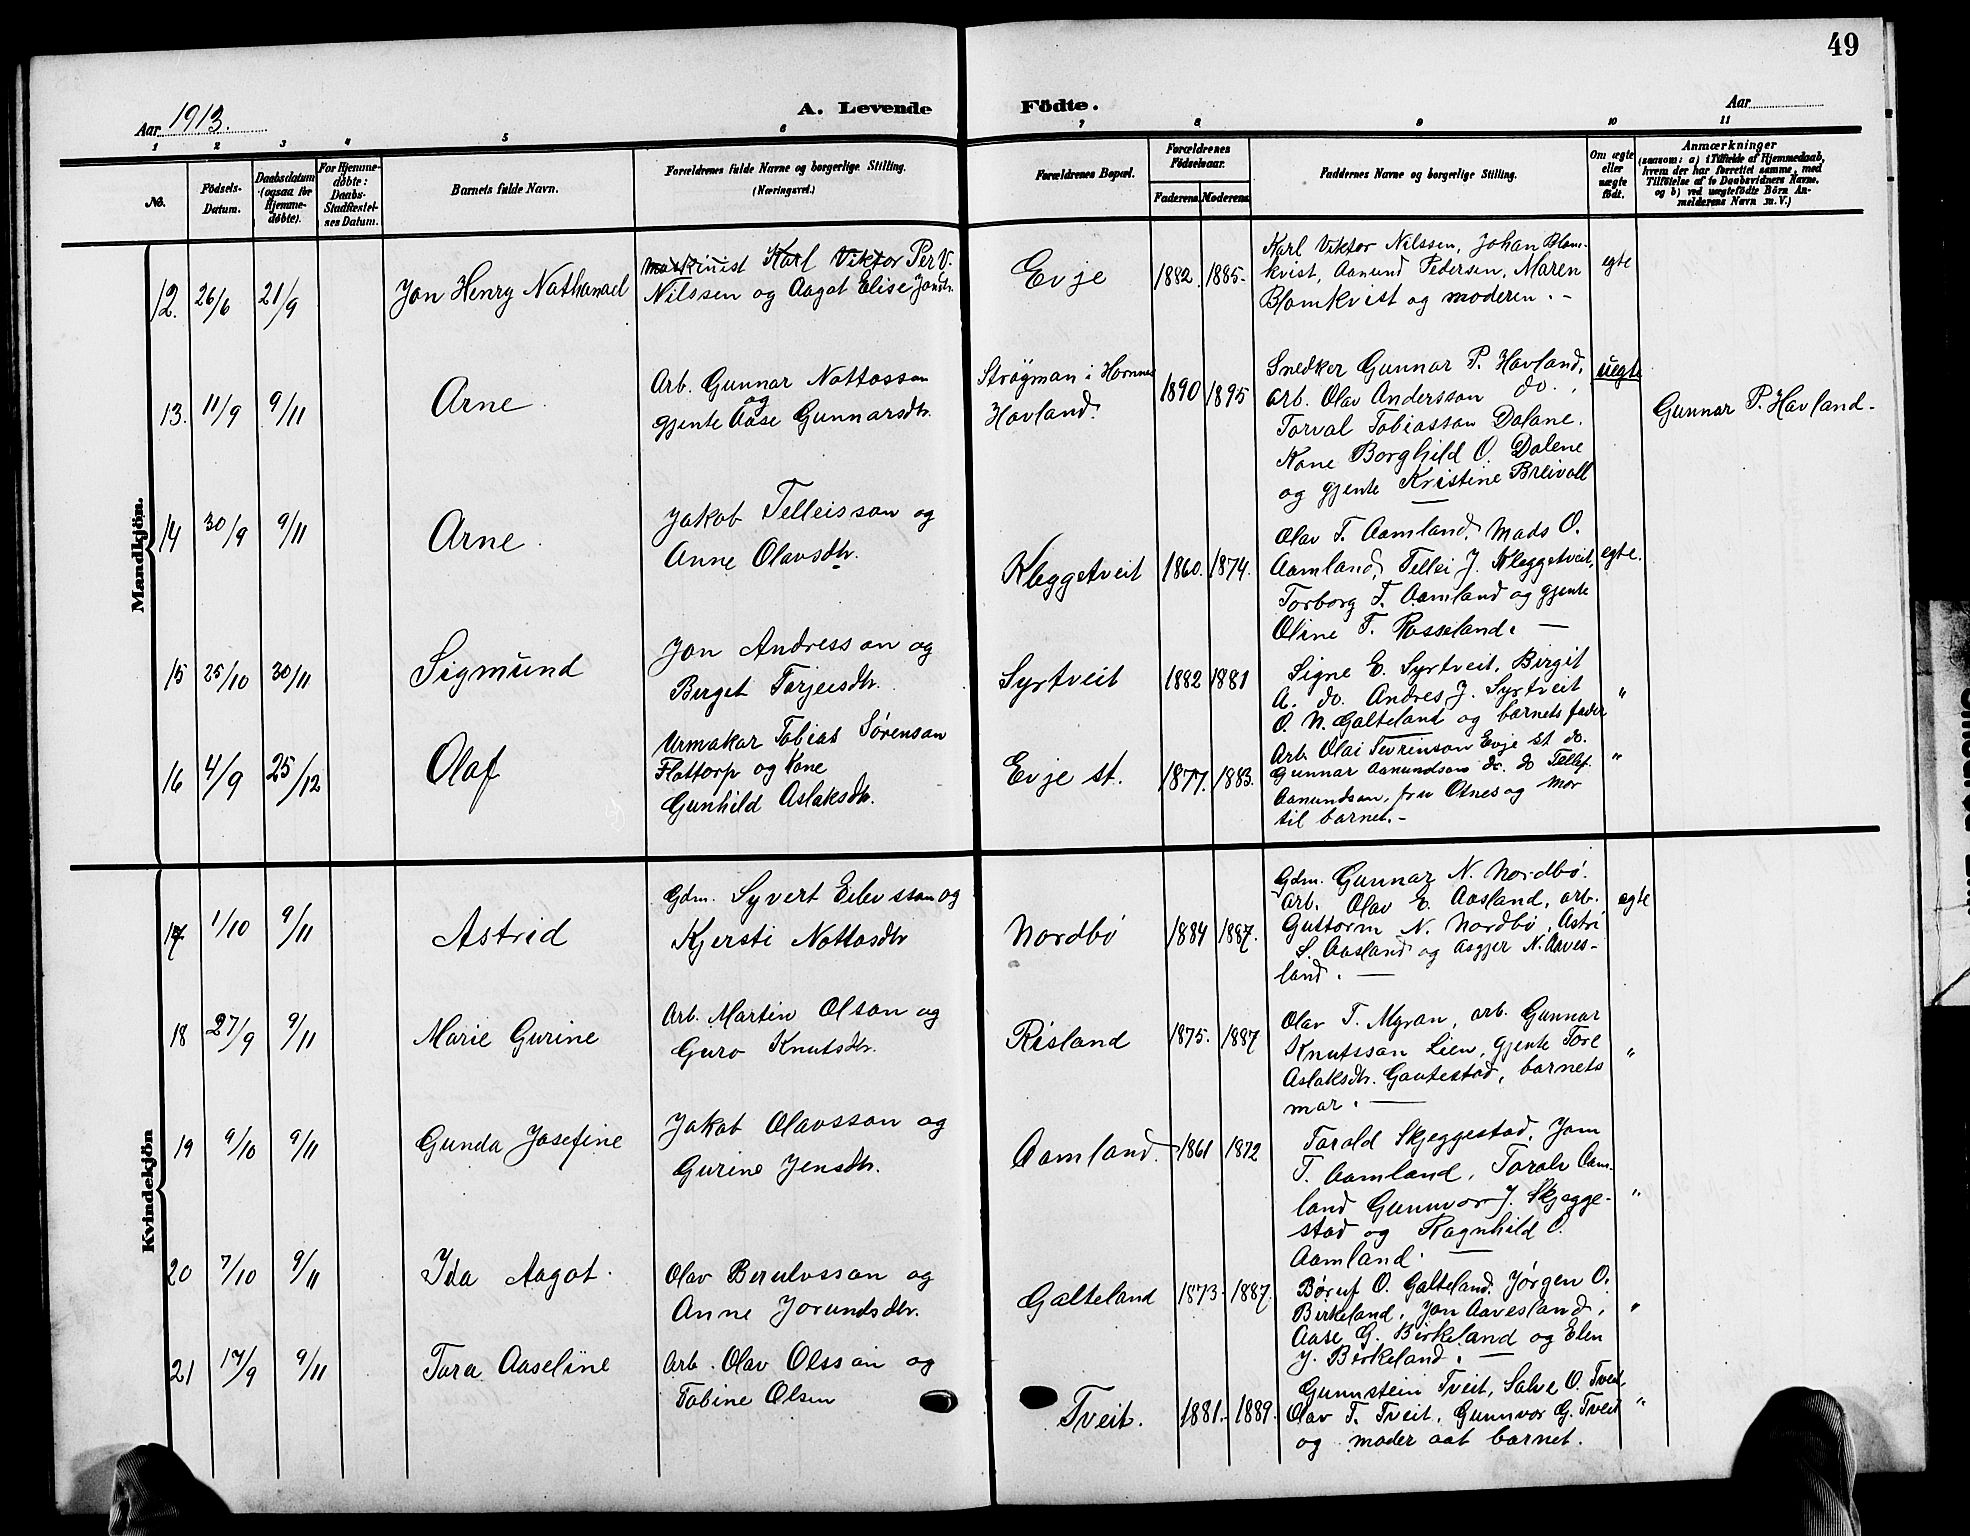 49
Aar 1913.
A. Levende Födte.
Aar
1 2 3 4 5 6 7 8 9 10 11
No.
Födsels-Datum.
Daabsdatum (ogsaa for Hjemmedöbte).
For Hjemmedöbte: Daabs-Stadfæstelses Datum.
Barnets fulde Navn.
Forældrenes fulde Navne og borgerlige Stilling. (Næringsvei.)
Forældrenes Bopæl.
Forældrenes Födselsaar.
Faderens Moderens
Faddernes Navne og borgerlige Stilling.
Om ægte eller uægte födt.
Anmærkninger
(saasom: a) i Tilfælde af Hjemmedaab, hvem der har forrettet samme, med Tilföielse af to Daabsvidners Navne, og b) ved uægtefödte Börn Anmelderens Navn m. V.)
Mandkjön.
12. 26/6 21/9 Jon Henry Nathanael
Maskinist Karl Viktor Per V.
Nilssen og Aagot Elise Jonsdtr.
Evje 1882. 1885.
Karl Viktor Nilssen, Johan Blom-
kvist, Aanund Pedersen, Maren
Blomkvist og moderen. -
egte
13. 11/9 9/11 Arne.
Arb. Gunnar Nottosson
og
gjente Aase Gunnarsdtr.
Strøgman i Hornnes
Havland.
1890 1895
Snedker Gunnar P. Havland,
arb. Olav Andersson do.,
Torval Tobiasson Dalane.
Kone Borghild O. Dalene
og gjente Kristine Breivoll
uegte
Gunnar P. Havland.
14 30/9 9/11 Arne.
Jakob Telleisson og
Anne Olavsdtr.
Kleggetveit 1860. 1874.
Olav T. Aamland, Mads O.
Aamland, Tellei J. Kleggetveit,
Torborg T. Aamland og gjente
Oline T. Rosseland. -
egte.
15 25/10 30/11 Sigmund
Jon Andresson og
Berget Torjeisdtr.
Syrtveit 1882 1881
Signe E. Syrtveit, Birgit
A. do. Andres J. Syrtveit
O. N. Galteland og barnets fader
"
16 4/9 25/12 Olaf
Urmakar Tobias Sørenson
Flattorp og Kone
Gunhild Aslaksdtr.
Evje st. 1877. 1883.
Arb. Olai Sevrinson Evje st do.
Gunnar Aanundson do. do Tellef
Aanundson, fru Otnes og mor
til barnet. -
"
Kvindekjön
17 1/10 9/11 Astrid
Gdm. Syvert Eilevsson og
Kjersti Nottosdtr
Nordbø 1884 1887.
Gdm. Gunnar N. Nordbø.
arb. Olav E. Aasland, arb.
Guttorm N. Nordbø, Astri
S. Aasland og Asgjer N. Aaves-
land. -
egte
18 27/9 9/11 Marie Gurine
Arb. Martin Olson og
Guro Knutsdtr.
Risland 1875. 1887
Olav T. Myran, arb. Gunnar
Knutsson Lien, gjente Tore
Aslaksdtr. Gautestad, barnets
mor. -
"
19 9/10 9/11 Gunda Josefine
Jakob Olavsson og
Gurine Jensdtr.
Aamland. 1861 1872
Torald Skjeggestad, Jom
T. Aamland, Torals Aam-
land Gunnvor J. Skjegge-
stad og Ragnhild O.
Aamland. -
"
20 7/10 9/11 Ida Aagot.
Olav Berulvsson og
Anne Jorundsdtr.
Galteland 1873 1887.
Børuf O. Galteland. Jørgen O.
Birkeland, Jon Aavesland,
Aase G. Birkeland og Elen
J. Birkeland. -
"
21 17/9 9/11 Tora Aaseline
Arb. Olav Olsson og
Tobine Olsen
Tveit. 1881. 1889.
Gunnstein Tveit, Salve O. Tveit,
Olav T. Tveit, Gunnvor G. Tveit
og moder aat barnet.
"